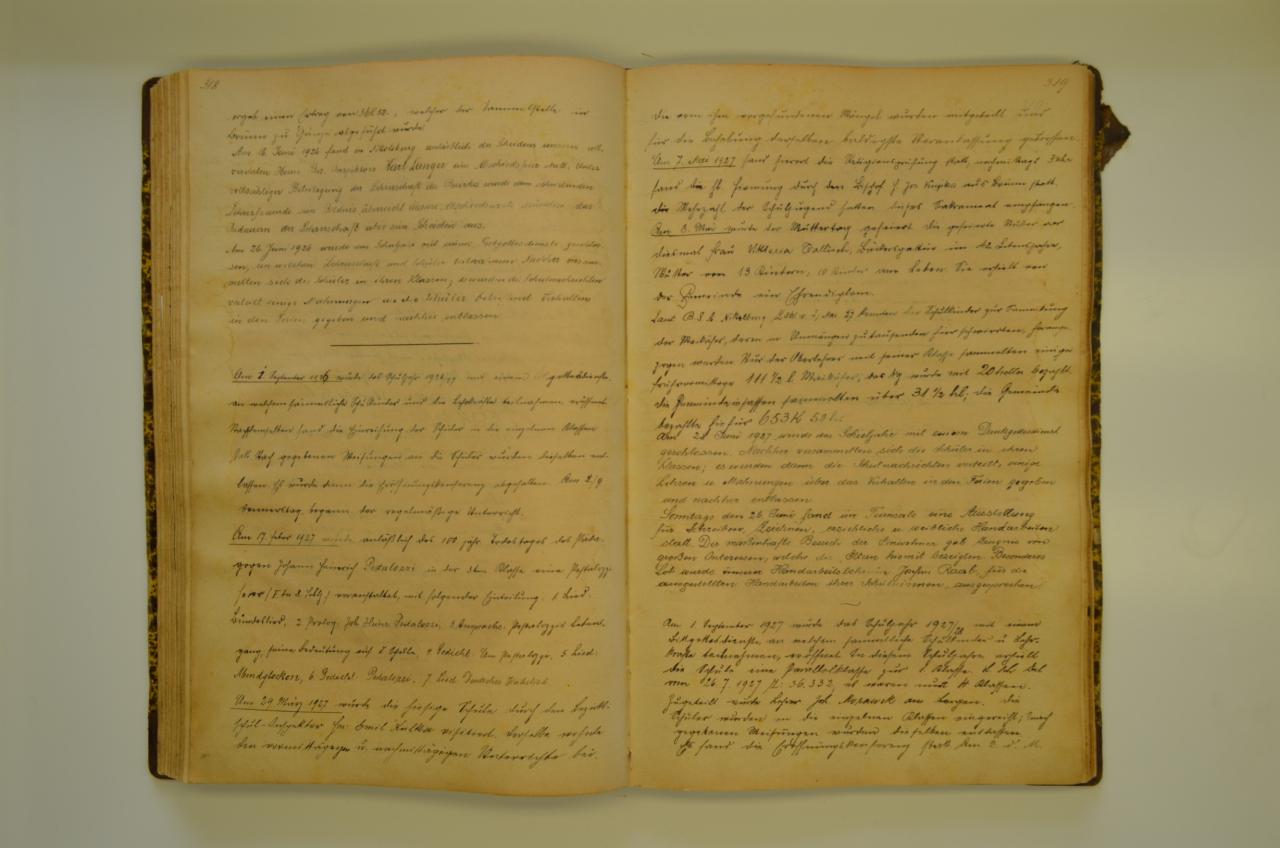 318
ergab einen Ertrag von welcher der Sammelstelle in
Brünn zu Gänze abgeführt wurde
Am 16. Juni 1926 fand in Nikolsburg anläßlich des Scheidens unseres
Herrn Bez. Inspektors Karl Langer ein Abschiedsfeier statt. Unter
vollzähliger Beteiligung der Lehrerschaft des Bezirkes wurde dem scheidenden
Schulfreunde ein Bildnis überreicht. Abschiedsworte das
Bedauern der Lehrerschaft über sein Scheiden aus.
Am 26. Juni 1926 wurde das Schuljahr mit einem Festgottesdienste geschlos-
sen, an welchem Lehrerschaft und Schüler teilnahmen Nachher versam-
melten sich die Schüler in ihren Klassen, es wurden die Schulnachrichten
verteilt einige Mahnungen an die Schüler betr. und Verhalten
in den Ferien gegeben und nachher entlassen
Am 1. September 1926 wurde das Schuljahr 1926/27 mit einem gottesdienste,
an welchem sämmtliche Schulkinder und die Lehrkräfte teilnahmen eröffnet.
Nachdemselben fand die Einreihung der Schüler in die einzelnen Klassen
statt. Nach gegebenen Weisungen an die Schüler wurden dieselben ent-
lassen. Es wurde dann die Eröffnungskonferenz abgehalten. Am 2./9.
Donnerstag begann der regelmäßige Unterricht.
Am 17. feber 1927 wurde anläßlich des 100 jähr. Todestages des Päda-
gogen Johann Heinrich Pestalozzi in der 3ten Klasse eine Pestalozzi
feier veranstaltet, mit folgender Einteilung. 1. Lied:
Bundeslied, 2. Prolog: Joh. Heinr. Pestalozzi. 3. Ansprache: Pestalozzis Lebens-
gang, seine Bedeutung auf d. Schule. 4. Gedicht: Pestalozzi. 5. Lied:
Abendglocken, 6. Gedicht: Pestalozzi. 7. Lied: Deutsches
Am 29. März 1927 wurde die hiesige Schule durch den Bezirks-
schul-Inspektor Hr. Emil Kulka visitiert. Derselbe wohnte
den vormittägigen u. nachmittägigen Unterrichte bei.
319
Die von ihm vorgefundenen Mängel wurden mitgeteilt und
für die Behebung derselben baldigste Veranlassung getroffen.
Am 7. Mai 1927 fand hierort die Religionsprüfung statt, nachmittags
fand die hl. Firmung durch den Bischof aus Brünn statt.
die Mehrzahl der Schuljugend hatten dieses Sakrament empfangen.
Am 8. Mai wurde der Muttertag gefeiert die gefeierte Mutter war
diesmal Frau Viktoria Bäckersgattin im 42. Lebensjahre,
Mutter von 13 Kindern, 10 Kinder am Leben. Sie erhielt von
der Gemeinde ein Ehrendiplom.
Laut B.S.A. Nikolsburg wurden die Schulkinder zur Sammlung
der Maikäfer, deren in Unmengen zu tausenden hier schwirrten, heran-
gezogen werden. Nur der Oberlehrer mit seiner Klasse sammelten einige
Frühvormittage 111 ½ l. Maikäfer, das kg wurde mit 20 Heller bezahlt.
die Gemeindeinsassen sammelten über 31 ½ hl, die Gemeinde
bezahlte hiefür 653 K 50 h.
Am 28. Juni 1927 wurde das Schuljahr mit einem Dankgottesdienst
geschlossen. Nachher versammelten sich die Schüler in ihren
Klassen; es wurden dann die Schulnachrichten verteilt, einige
Lehren u. Mahnungen über das Verhalten in den Ferien gegeben
und nachher entlassen
Sonntags den 26. Juni fand im Turnsaale eine Ausstellung
für Schreiben, Zeichnen, u. weibliche Handarbeiten
statt. Der massenhafte Besuch der Einwohner gab Zeugnis vom
großen Interesse, welche die Eltern hiemit bezeigten. Besonderes
Lob wurde unserer Handarbeitslehrerin Raab, für die
ausgestellten Handarbeiten ihrer Schülerinnen, ausgesprochen.
Am 1. September 1927 wurde das Schuljahr 1927/28 mit einem
Bittgottesdienste, an welchem sämmtliche Schulkinder u. Lehr-
kräfte teilnahmen, eröffnet. In diesem Schuljahre erhielt
die Schule eine Parallelklasse zur 1. Klasse
vom 26. 7. 1927 Zl: 36.332, es waren nun 4 Klassen.
Zugeteilt wurde Lehrer Joh. Die
Schüler wurden in die einzelnen Klassen eingereiht, nach
gegebenen Weisungen wurden dieselben entlassen
Es fand die Eröffnungskonferenz statt. Am 2. d. M.